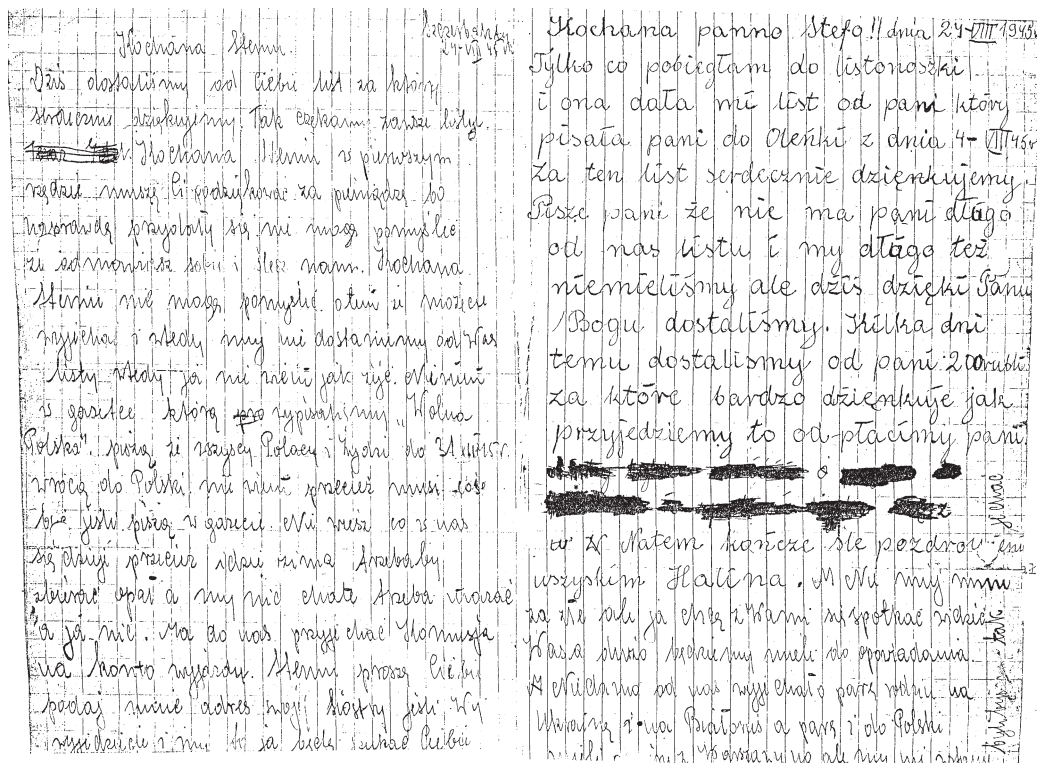 Kochana Steniu.
24-VIII 45 r
Dziś dostaliśmy od Ciebie list za który
serdecznie dziękujemy. Tak czekamy zawsze listu.
Kochana Steniu w pierwszym
rzędzie muszę Ci podziękować za pieniądze bo
naprawdę przydały się nie mogę pomyśleć
że odmawiasz sobie i ślesz nam. Kochana
Steniu nie mogę pomyśleć o tem że możecie
wyjechać i wtedy my nie dostaniemy od Was
listu wtedy ja nie wiem jak żyć. Mienim
w gazetce którą wypisaliśmy "Wolna
Polska" piszą że wszyscy Polacy i Żydzi do 31 XII 45 r.
wrócą do Polski nie wiem przecież musi coś
być jeśli piszą w gazecie. Nie wiesz co u nas
się dzieje przecież idzie zima trzebaby
zbierać opał a my nic chatę trzeba
a ja nic. Ma do nas przyjechać Komisja
na konto wyjazdu. Steniu proszę Ciebie
podaj mnie adres swojej siostry jeśli Wy
wyjedziecie i my to ja będę szukać Ciebie
Kochana panno Stefo!! dnia 24-VIII 1945r
Tylko co pobiegłam do listonoszki
i ona dała mi list od pani który
pisała pani do Oleńki z dnia 4-VIII 45r
Za ten list serdecznie dzięnkujemy.
Pisze pani że nie ma pani długo
od nas listu i my długo też
niemieliśmy ale dziś dzięki Panu
Bogu dostaliśmy. Kilka dni
temu dostalismy od pani 200 rubli
za które bardzo dzięnkuje jak
przyjedziemy to od-płacimy pani
Natem kończe śle pozdrowienie
wszyskim Halina. Nie miej mnie
za złe ale ja chcę z Wami się spotkać widzieć
Was a dużo będziemy mieli do opowiadania
Niedawno od nas wyjechało parę rodzin na
Ukrainę i na Białoruś a parę i do Polski